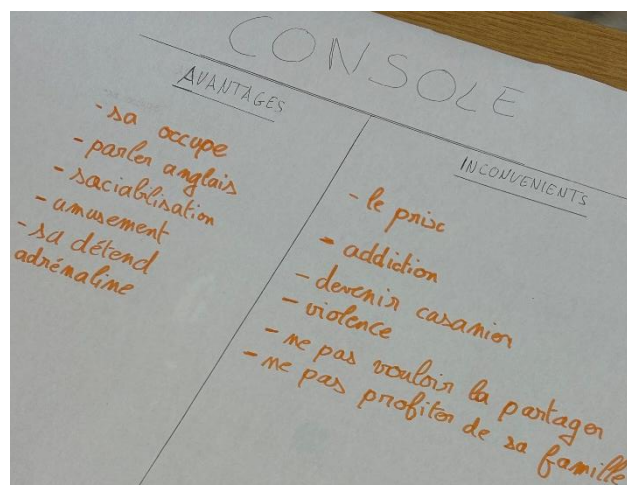 CONSOLE
AVANTAGES
- sa occupe
- parler anglais
- saciabilisation
- amusement
- sa détend
adrénaline
INCONVENIENTS
- le prix
- addiction
- devenir casanier
- violence
- ne pas vouloir la partager
- ne pas profiter de sa famille